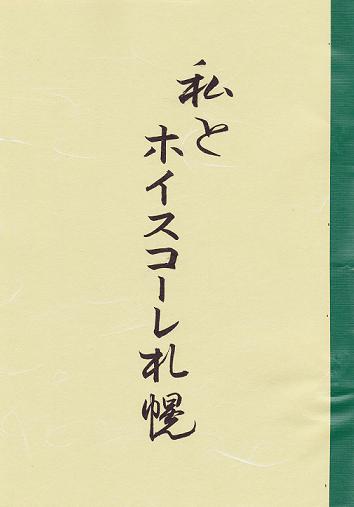 私と
ホイスコーレ札幌